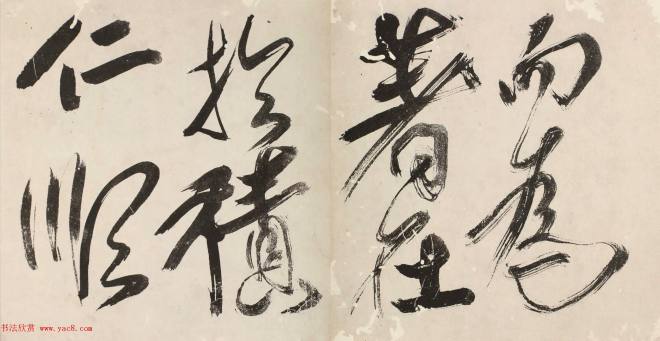 而為
著在
於積
仁順
书法欣赏 www.yac8.com